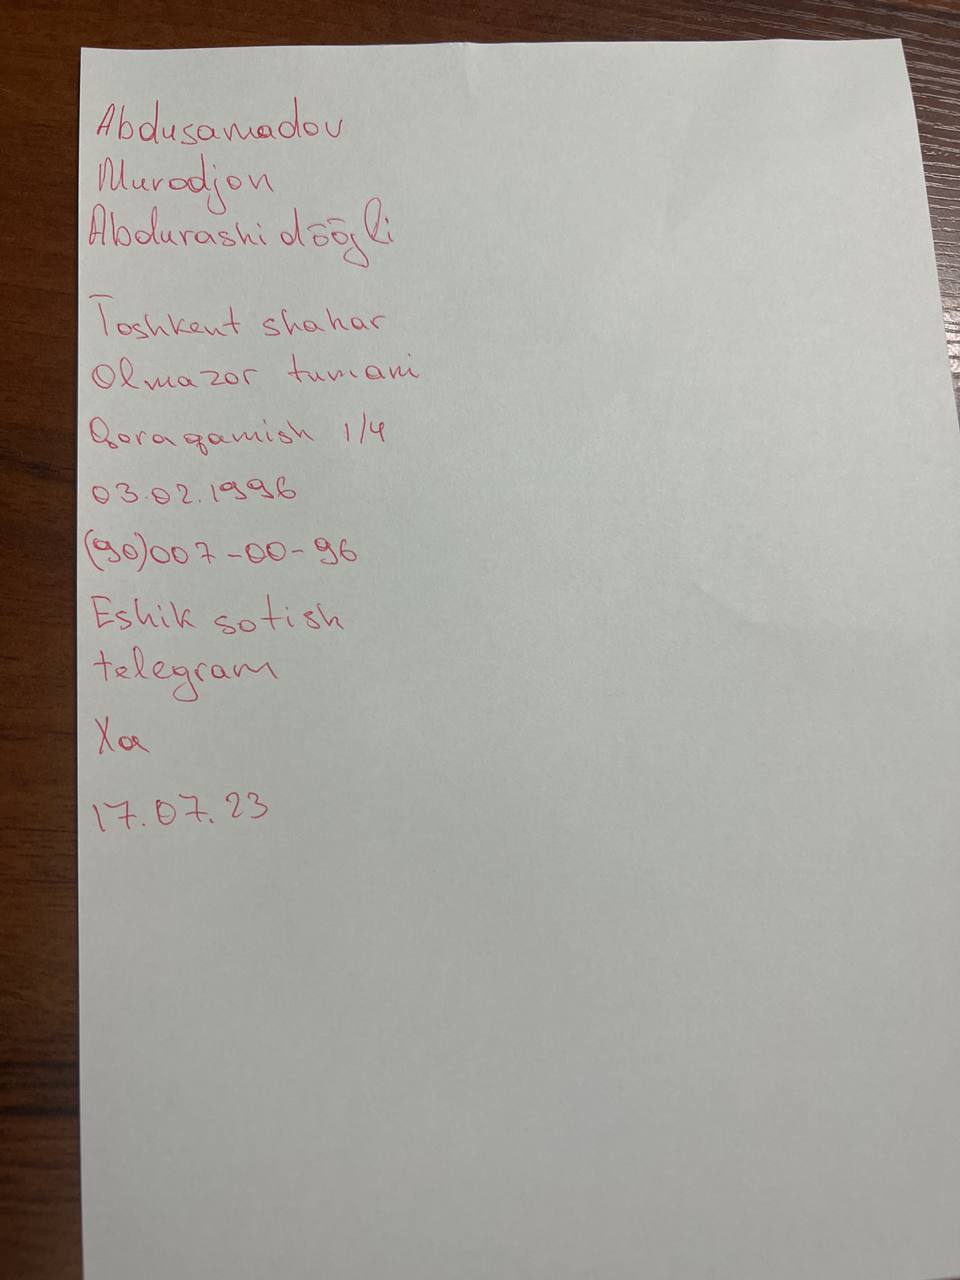 Abdusamadov
Murodjon
Abdurashi dōōgli
Toshkent shahar
Olmazor tumani
Qoraqamish 1/4
03.02.1996
(90)007-00-96
Eshik sotish
telegram
Xa
17.07.23